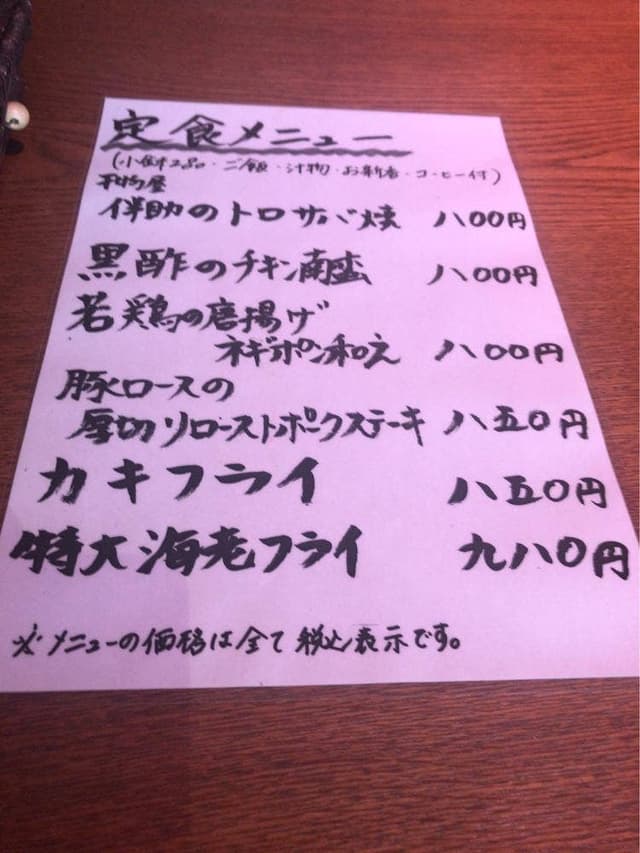 定食メニュー
(小鉢2品・ご飯・汁物・お新香・コーヒー付)
干物屋
伴助のトロサバ焼 八00円
黒酢のチキン南蛮 八00円
若鶏の唐揚げ
ネギポン和え 八00円
豚ロースの
厚切りローストポークステーキ 八五0円
カキフライ 八五0円
特大海老フライ 九八0円
※メニューの価格は全て税込表示です。